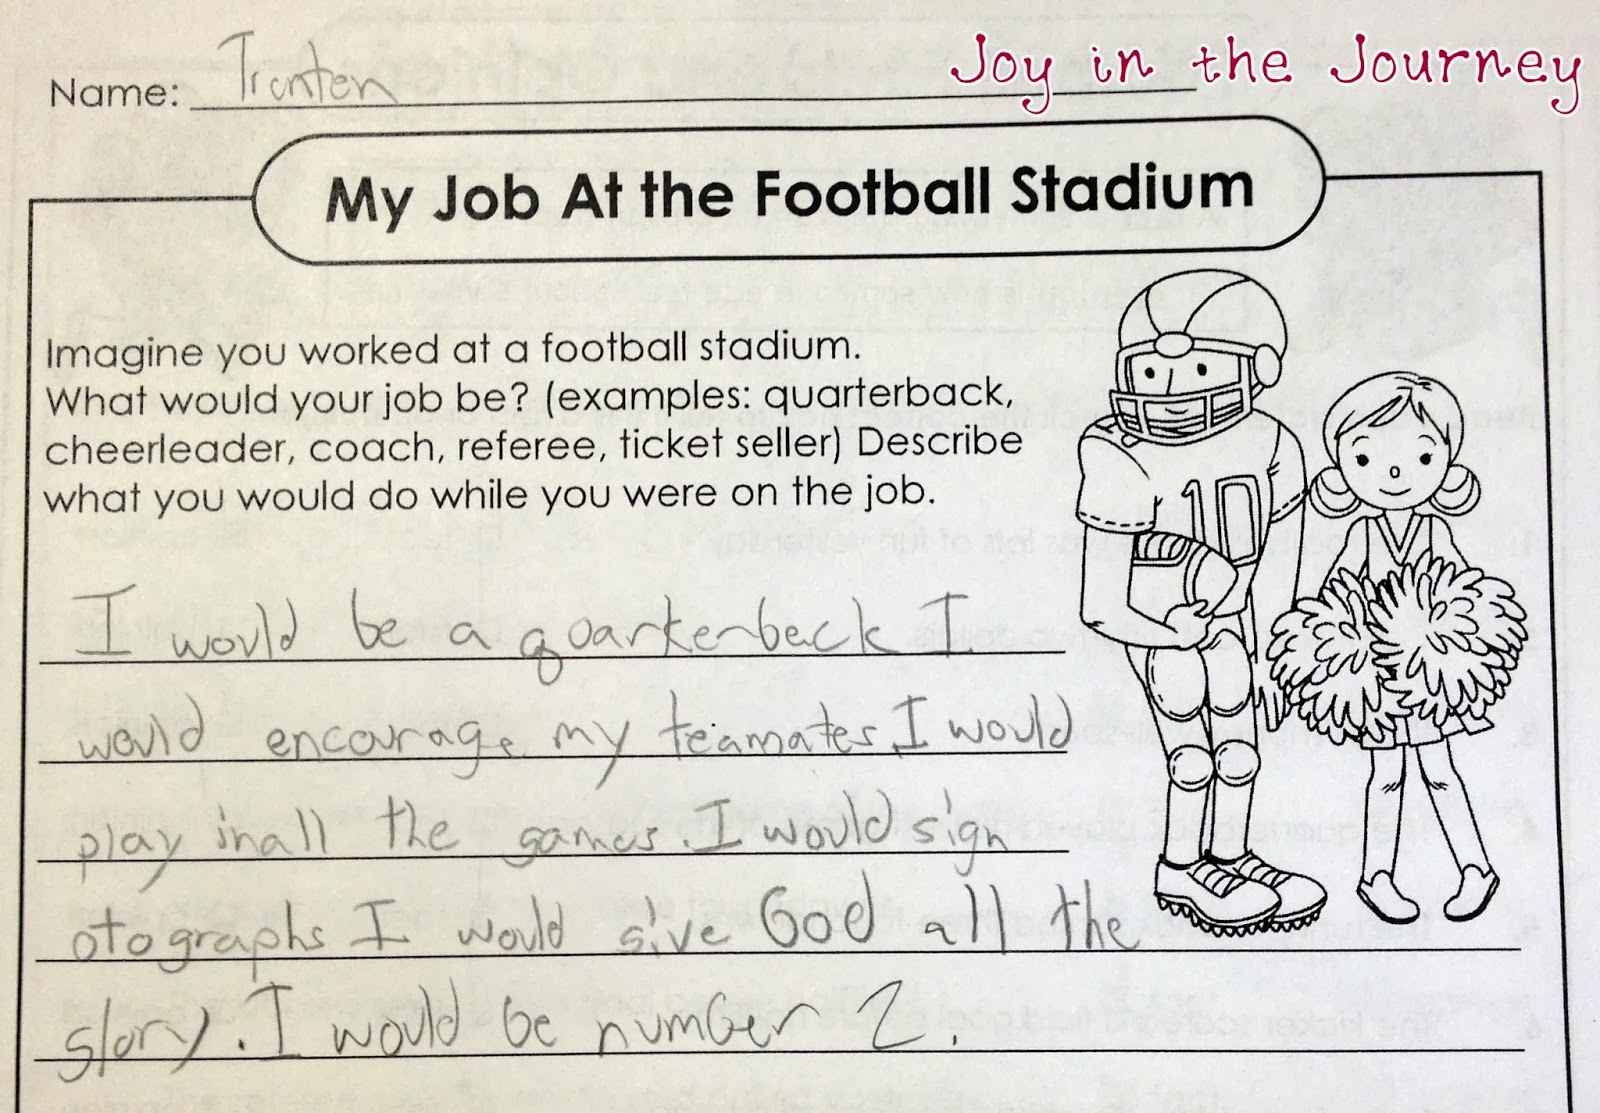 Joy in the Journey
Name: Trenten
My Job At the Football Stadium
Imagine you worked at a football stadium.
What would your job be? (examples: quarterback,
cheerleader, coach, referee, ticket seller) Describe
what you would do while you were on the job.
10
I would be a quarterback I
would encourage my teamates. I would
play in all the games. I would sign
otographs I would give God all the
glory. I would be number 2.